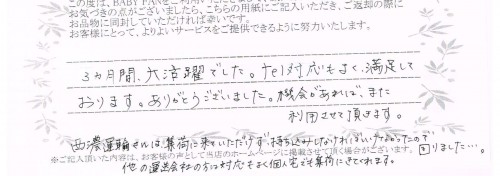 この度は、BABY PARK
お気づきの点がございましたら、こちらの用紙にご記入いただき、ご返却の際に
お品物に同封していただければ幸いです。
お客様にとって、よりよいサービスをご提供できるように努力いたします。
3ヵ月間、大活躍でした。tel対応もよく、満足して
おります。ありがとうございました。機会があれば、また
利用させて頂きます。
西濃運輸さんは、集荷に来ていただけず、持ち込みしなければいけなかったので
困りました…。
※ご記入頂いた内容は、お客様の声として当店のホームページに掲載させて頂く場合がございます。
他の運送会社の方は対応もよく個人宅も集荷にきてくれます。